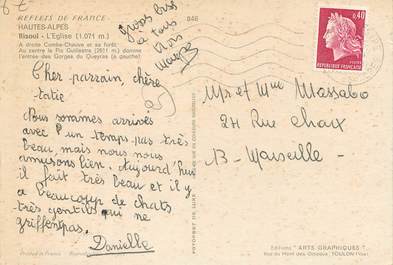 6 €
REFLETS DE FRANCE
HAUTES-ALPES
Risoul - L'Eglise (1.071 m.)
A droite Combe-Chauve et sa forêt
Au centre le Pic Guillestre (2511 m.) domine
l'entrée des Gorges du Queyras (à gauche)
Cher parrain, chère
tatie
Nous sommes arrivés
avec l'un temps pas très
beau, mais nous nous
amusons bien. Aujourd'hui
il fait très beau et il y
a beaucoup de chats
très gentils qui ne
griffent pas.
Danielle
Printed in France
848
gros bises
à tous
trois
0,40
REPUBLIQUE FRANÇAISE
POSTES
Mr et Mme Massabo
24 Rue chaix
13 - Marseille -
Editions "ARTS GRAPHIQUES"
Rue du Mont des Oiseaux TOULON (Var)